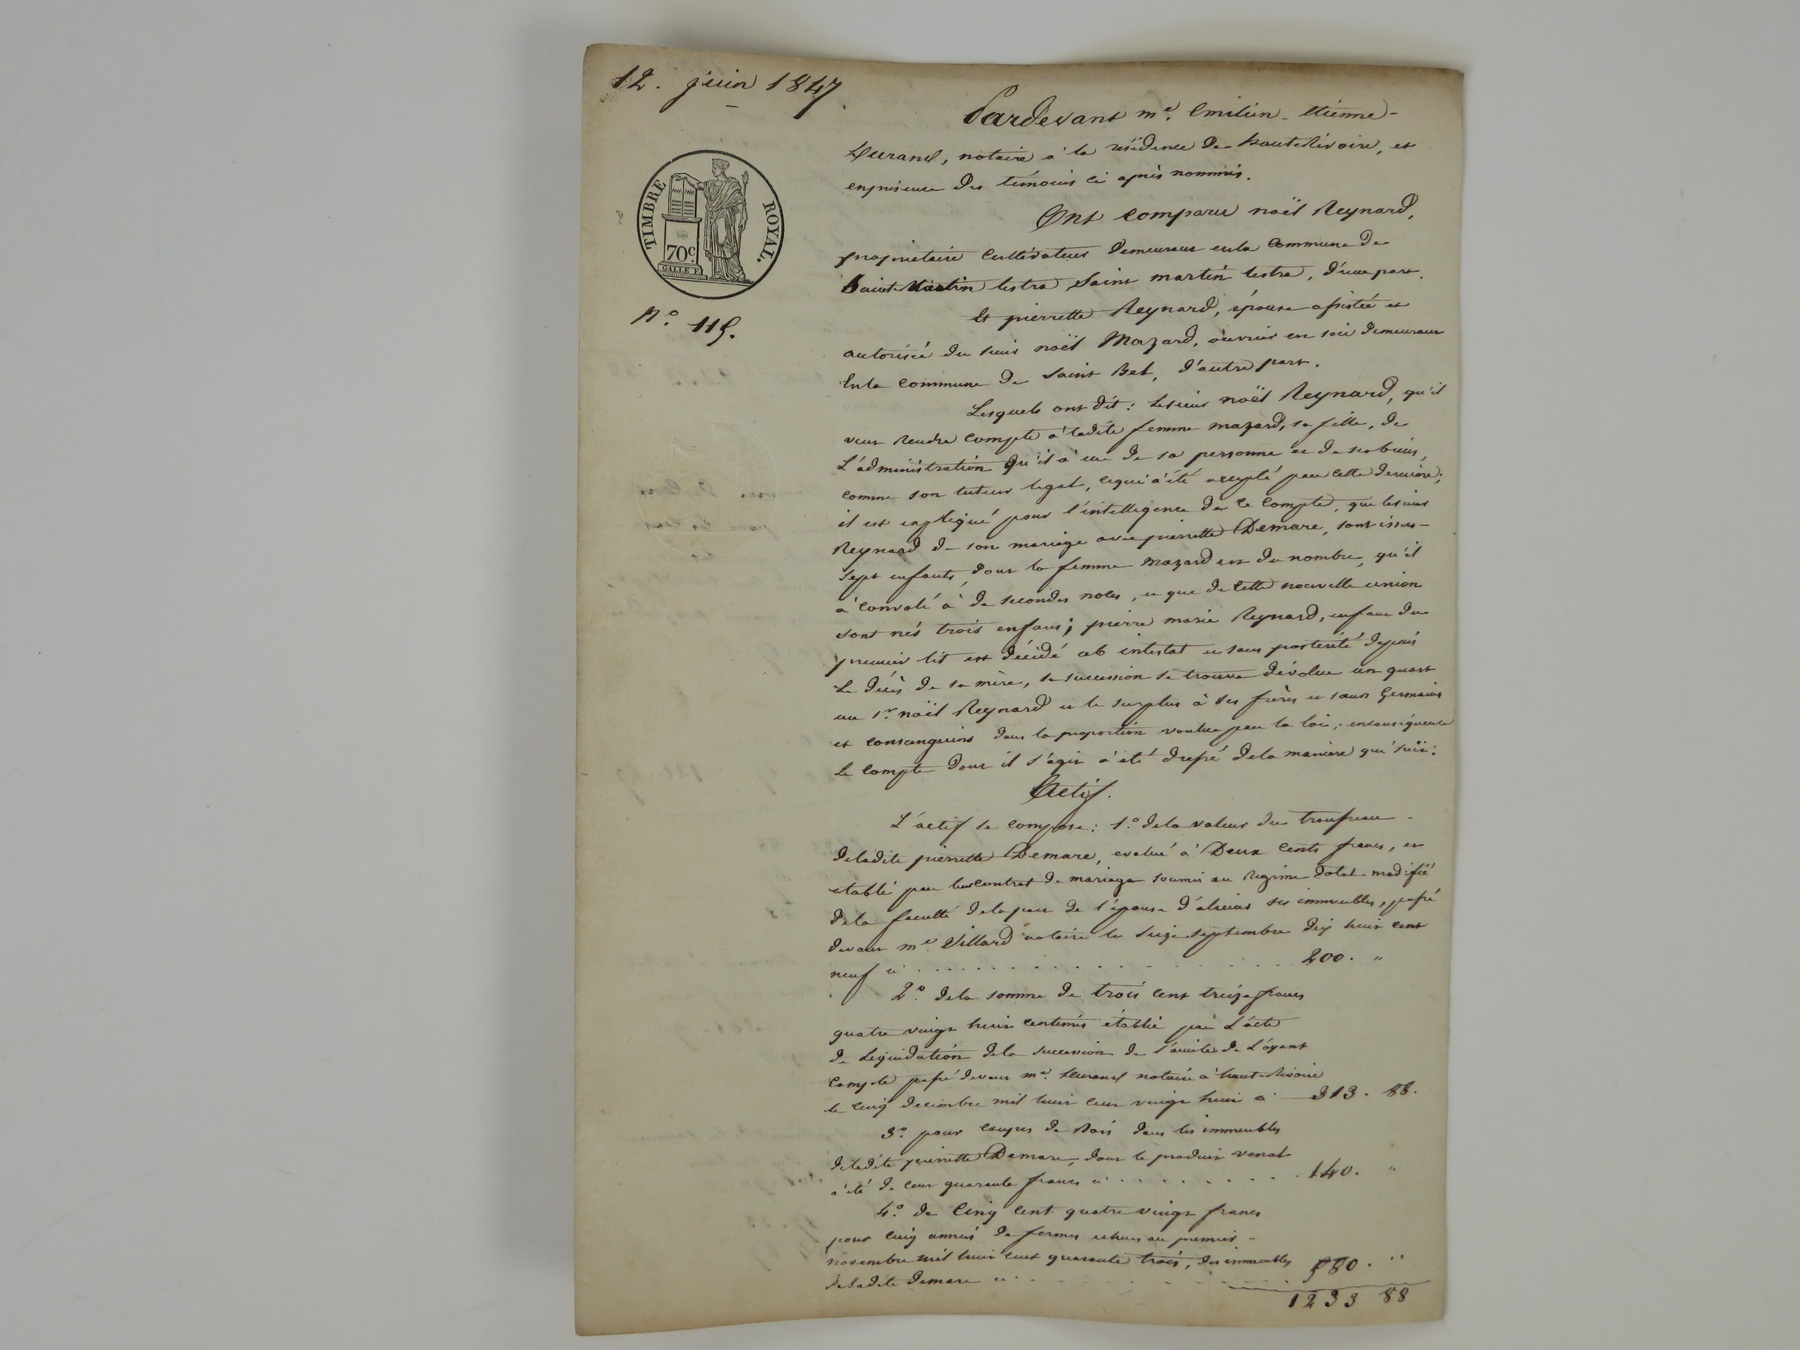 12. juin 1847.
Pardevant me. Emilien-Etienne-
Durand, notaire à la résidence de hauterivoire, et
en présence des témoins ci après nommés.
Ont comparu noël Reynard,
propriétaire cultivateur demeurant en la commune de
Saint Martin lestra Saint martin lestra, d'une part.
Et pierrette Reynard, épouse assistée et
autorisée du sieur noël Mazard, ouvrier en soie demeurant
En la commune de Saint Bel, d'autre part.
Lesquels ont dit: le sieur noël Reynard, qu'il
veut rendre compte à ladite femme mazard, sa fille, de
L'administration qu'il a eue de sa personne et de ses biens,
comme son tuteur légal, ce qui a été accepté par cette dernière;
il est expliqué pour l'intelligence de ce compte, que le sieur
Reynard de son mariage avec pierrette Demare, sont issus-
sept enfants, dont la femme mazard est du nombre, qu'il
à convolé à de secondes noces, et que de cette nouvelle union
sont nés trois enfans; pierre marie Reynard, enfant du
premier lit est décédé ab intestat et sans postérité depuis
le décès de sa mère, sa succession se trouve dévolue un quart
au sr. noël Reynard et le surplus à ses frères et sœurs Germains
et consanguins dans la proportion voulue par la loi; en conséquence
le compte dont il s'agit a été dressé de la manière qui suit:
Actif.
L'actif se compose: 1.° de la valeur du trousseau-
de ladite pierrette Demare, evalué à Deux cents francs, et
etabli par leur contrat de mariage soumis au Régime Dotal modifié
de la faculté de la part de l'épouse d'aliéner ses immeubles, passé
devant me. Villard notaire le seize septembre dix huit cent
neuf ci . . . . . . . . . . . . . . 200. "
2.° de la somme de trois cent treize francs
quatre vingt huit centimes établie par L'acte
de Liquidation de la succession de de L'oyant
compte passé devant me. Durand notaire à hauterivoire
le cinq décembre mil huit cent vingt huit ci 313. 88.
3.° pour coupes de Bois dans les immeubles
de ladite pierrette Demare, dont le produit
a été de cent quarante francs ci . . . . . . . . 140. "
4.° de Cinq cent quatre vingt francs
pour cinq années de fermes échues au premier-
novembre mil huit cent quarante trois, des immeubles 580. "
de ladite demare ci
1233 88
TIMBRE ROYAL.
70c.
N.° 115.